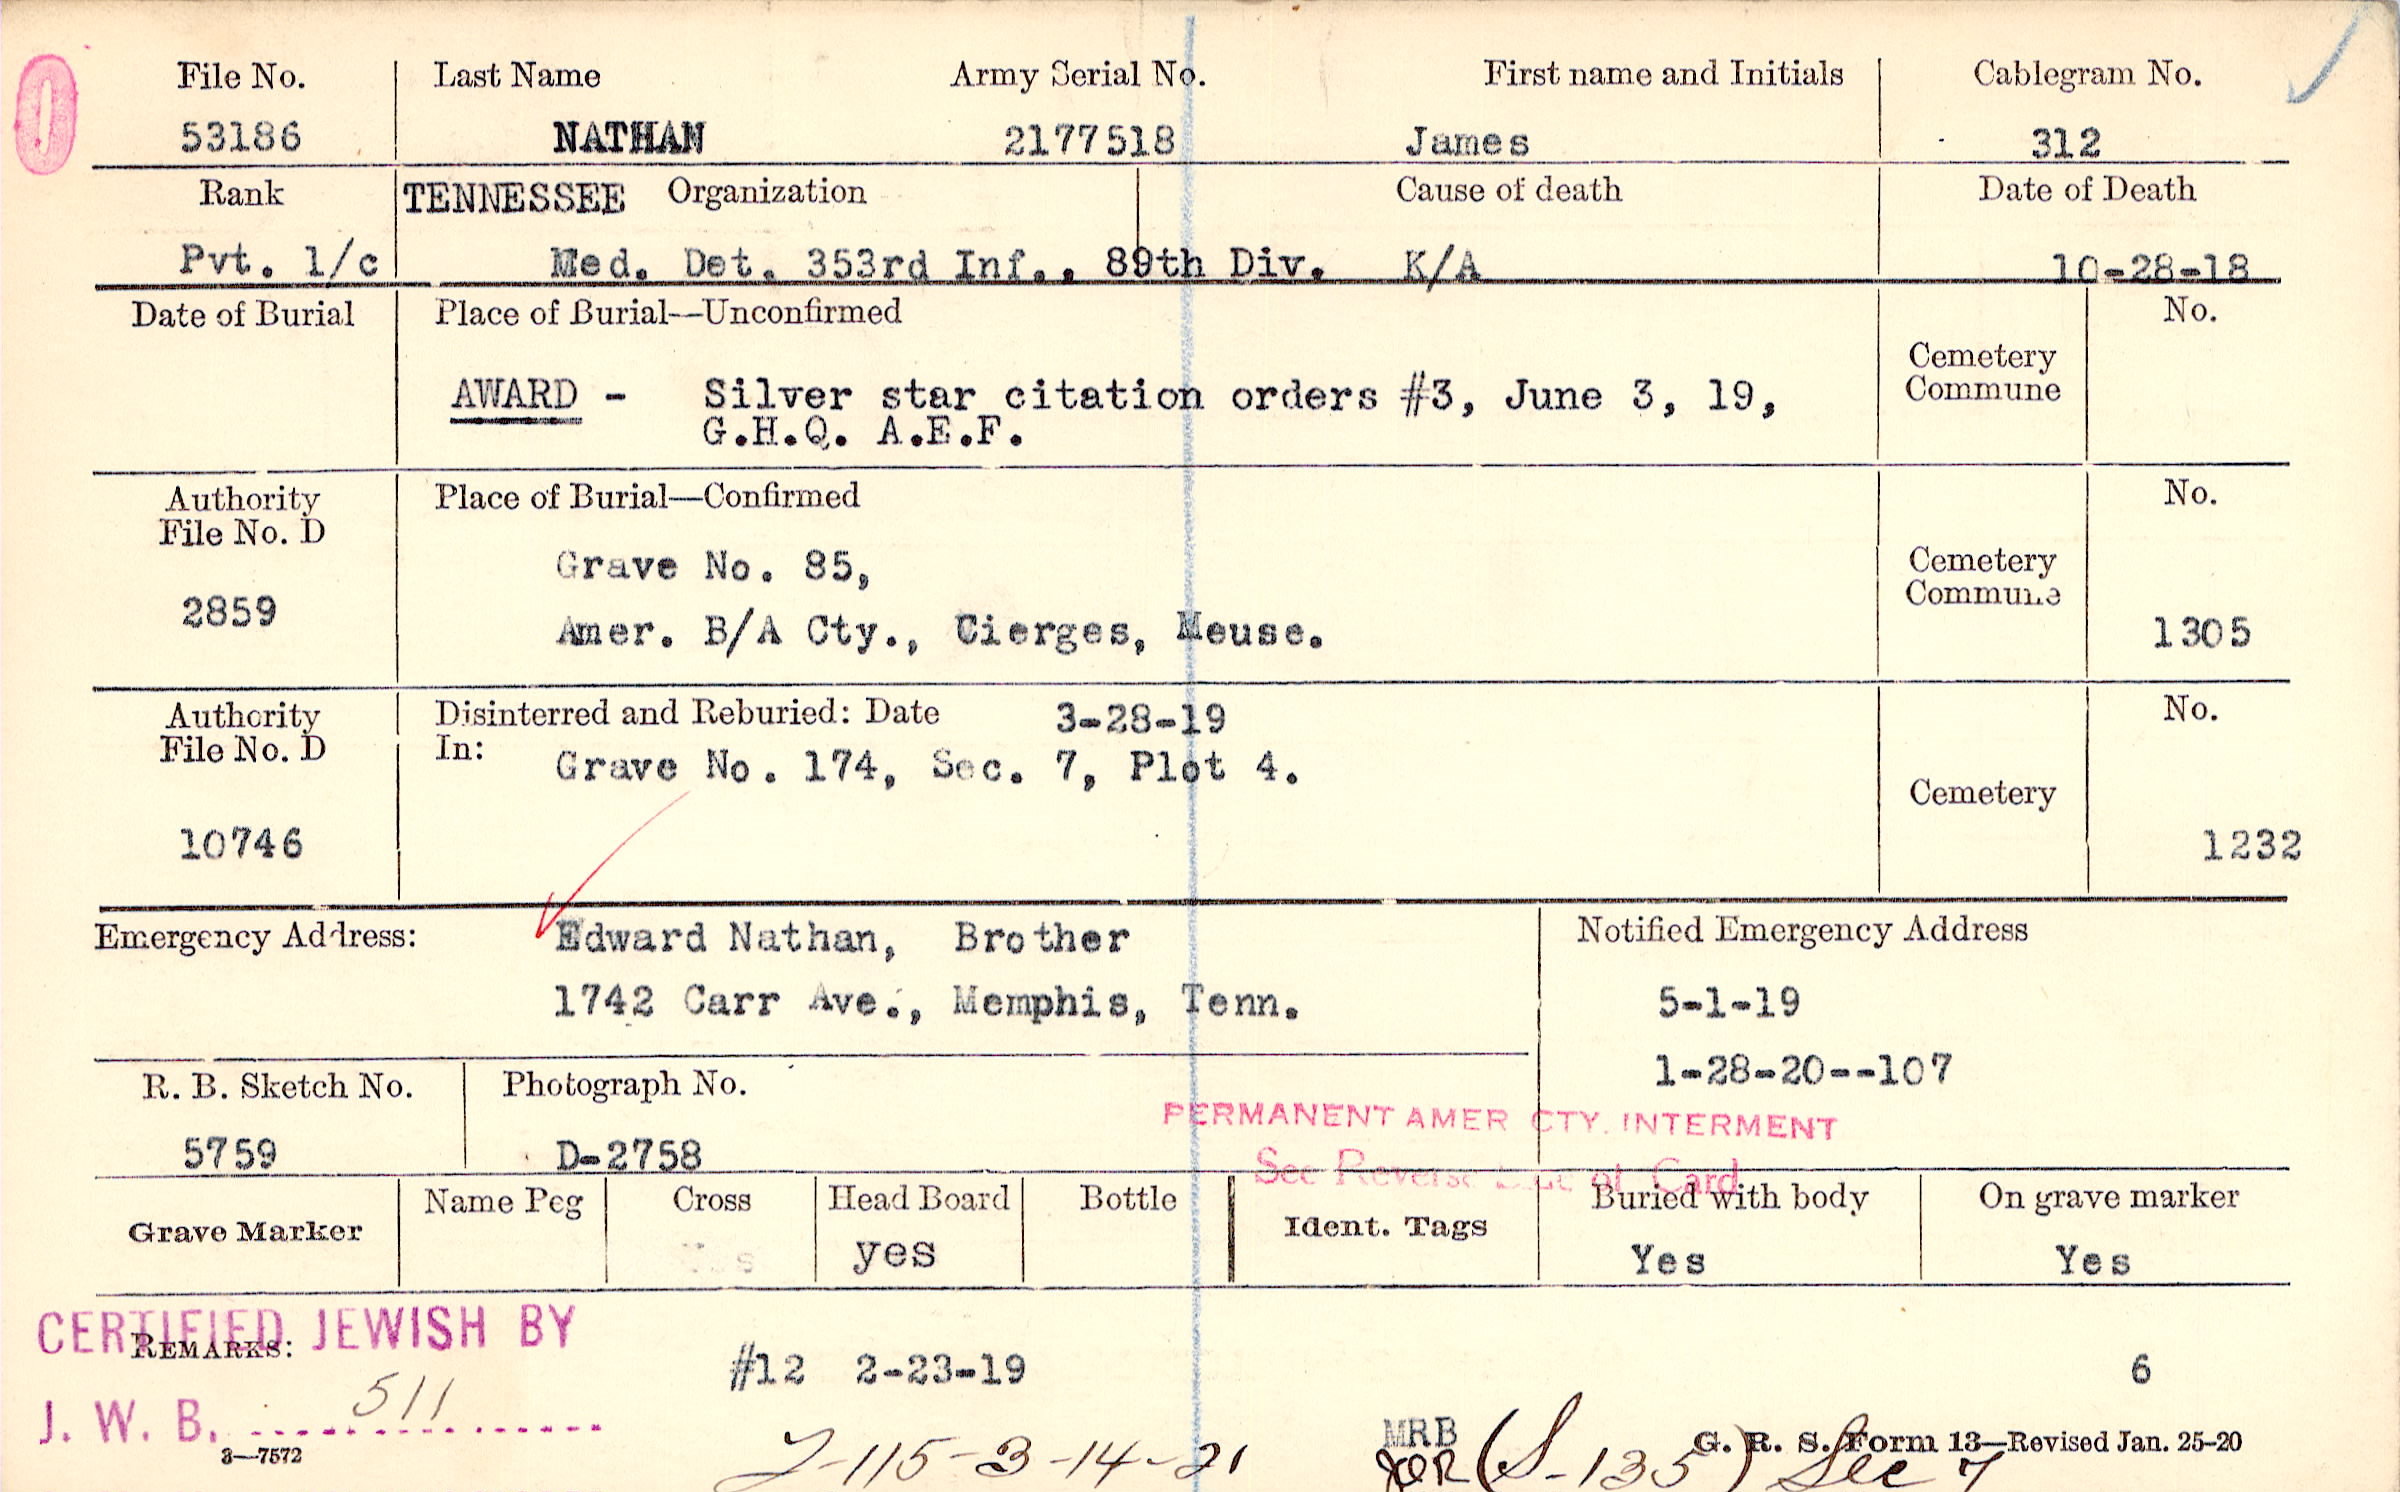 0
File No. Last Name Army Serial No. First name and Initials Cablegram No.
53186 NATHAN 2177518 James 312
Rank TENNESSEE Organization Cause of death Date of Death
Pvt. 1/c Med. Det. 353rd Inf., 89th Div. K/A 10-28-18
Date of Burial Place of Burial—Unconfirmed No.
Cemetery
Commune
AWARD - Silver star citation orders #3, June 3, 19,
G.H.Q. A.E.F.
Authority Place of Burial—Confirmed No.
File No. D
Grave No. 85, Cemetery
Commune
2859 Amer. B/A Cty., Cierges, Meuse. 1305
Authority Disinterred and Reburied: Date 3-28-19 No.
File No. D In: Grave No. 174, Sec. 7, Plot 4.
Cemetery
10746 1232
Emergency Address: Edward Nathan, Brother Notified Emergency Address
1742 Carr Ave., Memphis, Tenn. 5-1-19
1-28-20--107
R. B. Sketch No. Photograph No.
PERMANENT AMER CTY. INTERMENT
5759 D-2758
See Reverse Side of Card
Name Peg Cross Head Board Bottle Buried with body On grave marker
Grave Marker Ident. Tags
Yes yes Yes Yes
CERTIFIED JEWISH BY
REMARKS:
#12 2-23-19 6
J. W. B. 511
MRB G. R. S. Form 13—Revised Jan. 25-20
3—7572
115-3-14-21 (S-135) Sec 7